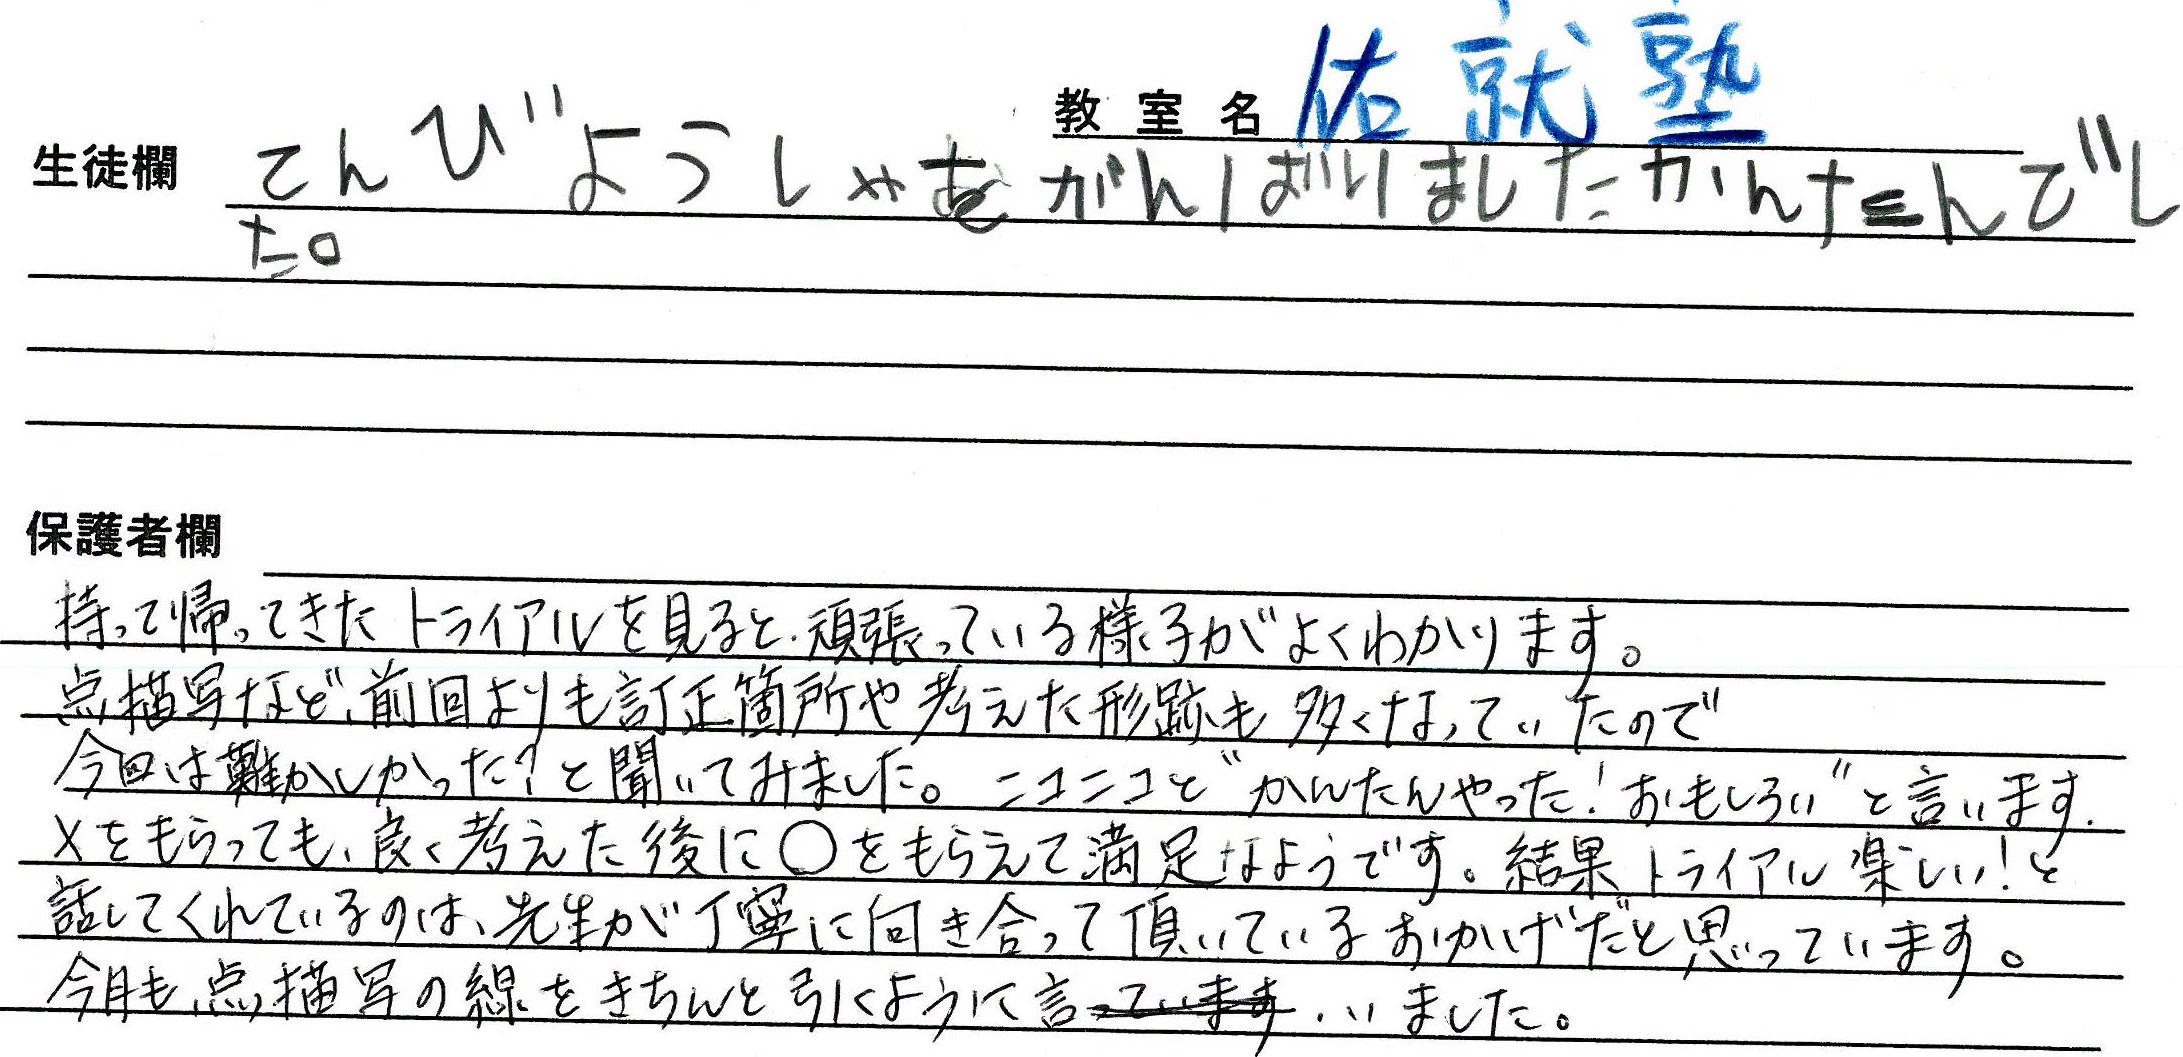 教室名 佑就塾
生徒欄 てんびようしゃをがんばりましたかんたんでし
た。
保護者欄
持って帰ってきたトライアルを見ると、頑張っている様子がよくわかります。
点描写など、前回よりも訂正箇所や考えた形跡も多くなっていたので
今回は難かしかった?と聞いてみました。ニコニコと"かんたんやった!おもしろい"と言います.
×をもらっても、良く考えた後に○をもらえて満足なようです。結果トライアル楽しい!と
話してくれているのは、先生が丁寧に向き合って頂いているおかげだと思っています。
今月も点描写の線をきちんと引くように言っています.いました。